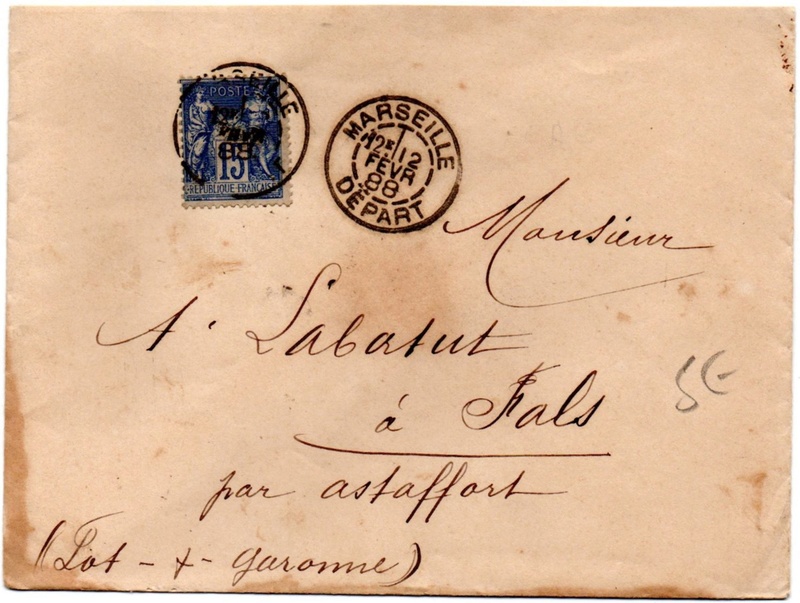 POSTE
15
RÉPUBLIQUE FRANÇAISE
88
MARSEILLE
12
FÉVR
88
DÉPART
Monsieur
A. Labatut
à Fals
par astaffort
(Lot-&-garonne)
5€